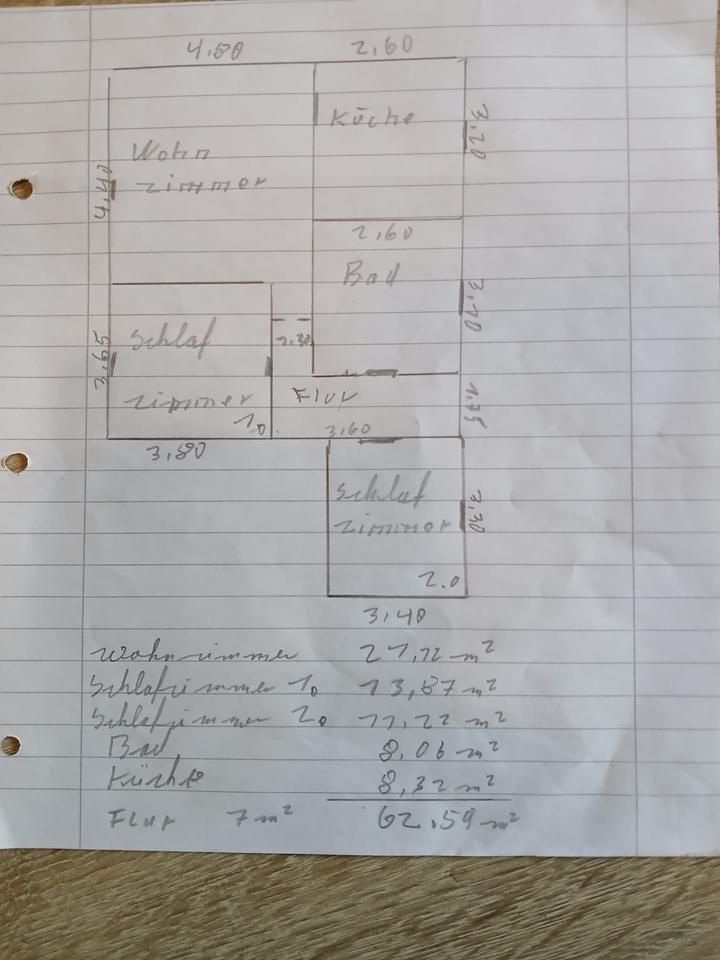 4,80 2,60
Küche
3,20
Wohn
zimmer
4,40
2,60
Bad
3,10
Schlaf
zimmer
1.
3,65
1.30
Flur
1.75
3,80
3,60
Schlaf
zimmer
2.
3,30
3,40
Wohnzimmer 21,12 m²
Schlafzimmer 1. 13,87 m²
Schlafzimmer 2. 11,22 m²
Bad 8,06 m²
Küche 8,32 m²
Flur 7 m² 62,59 m²